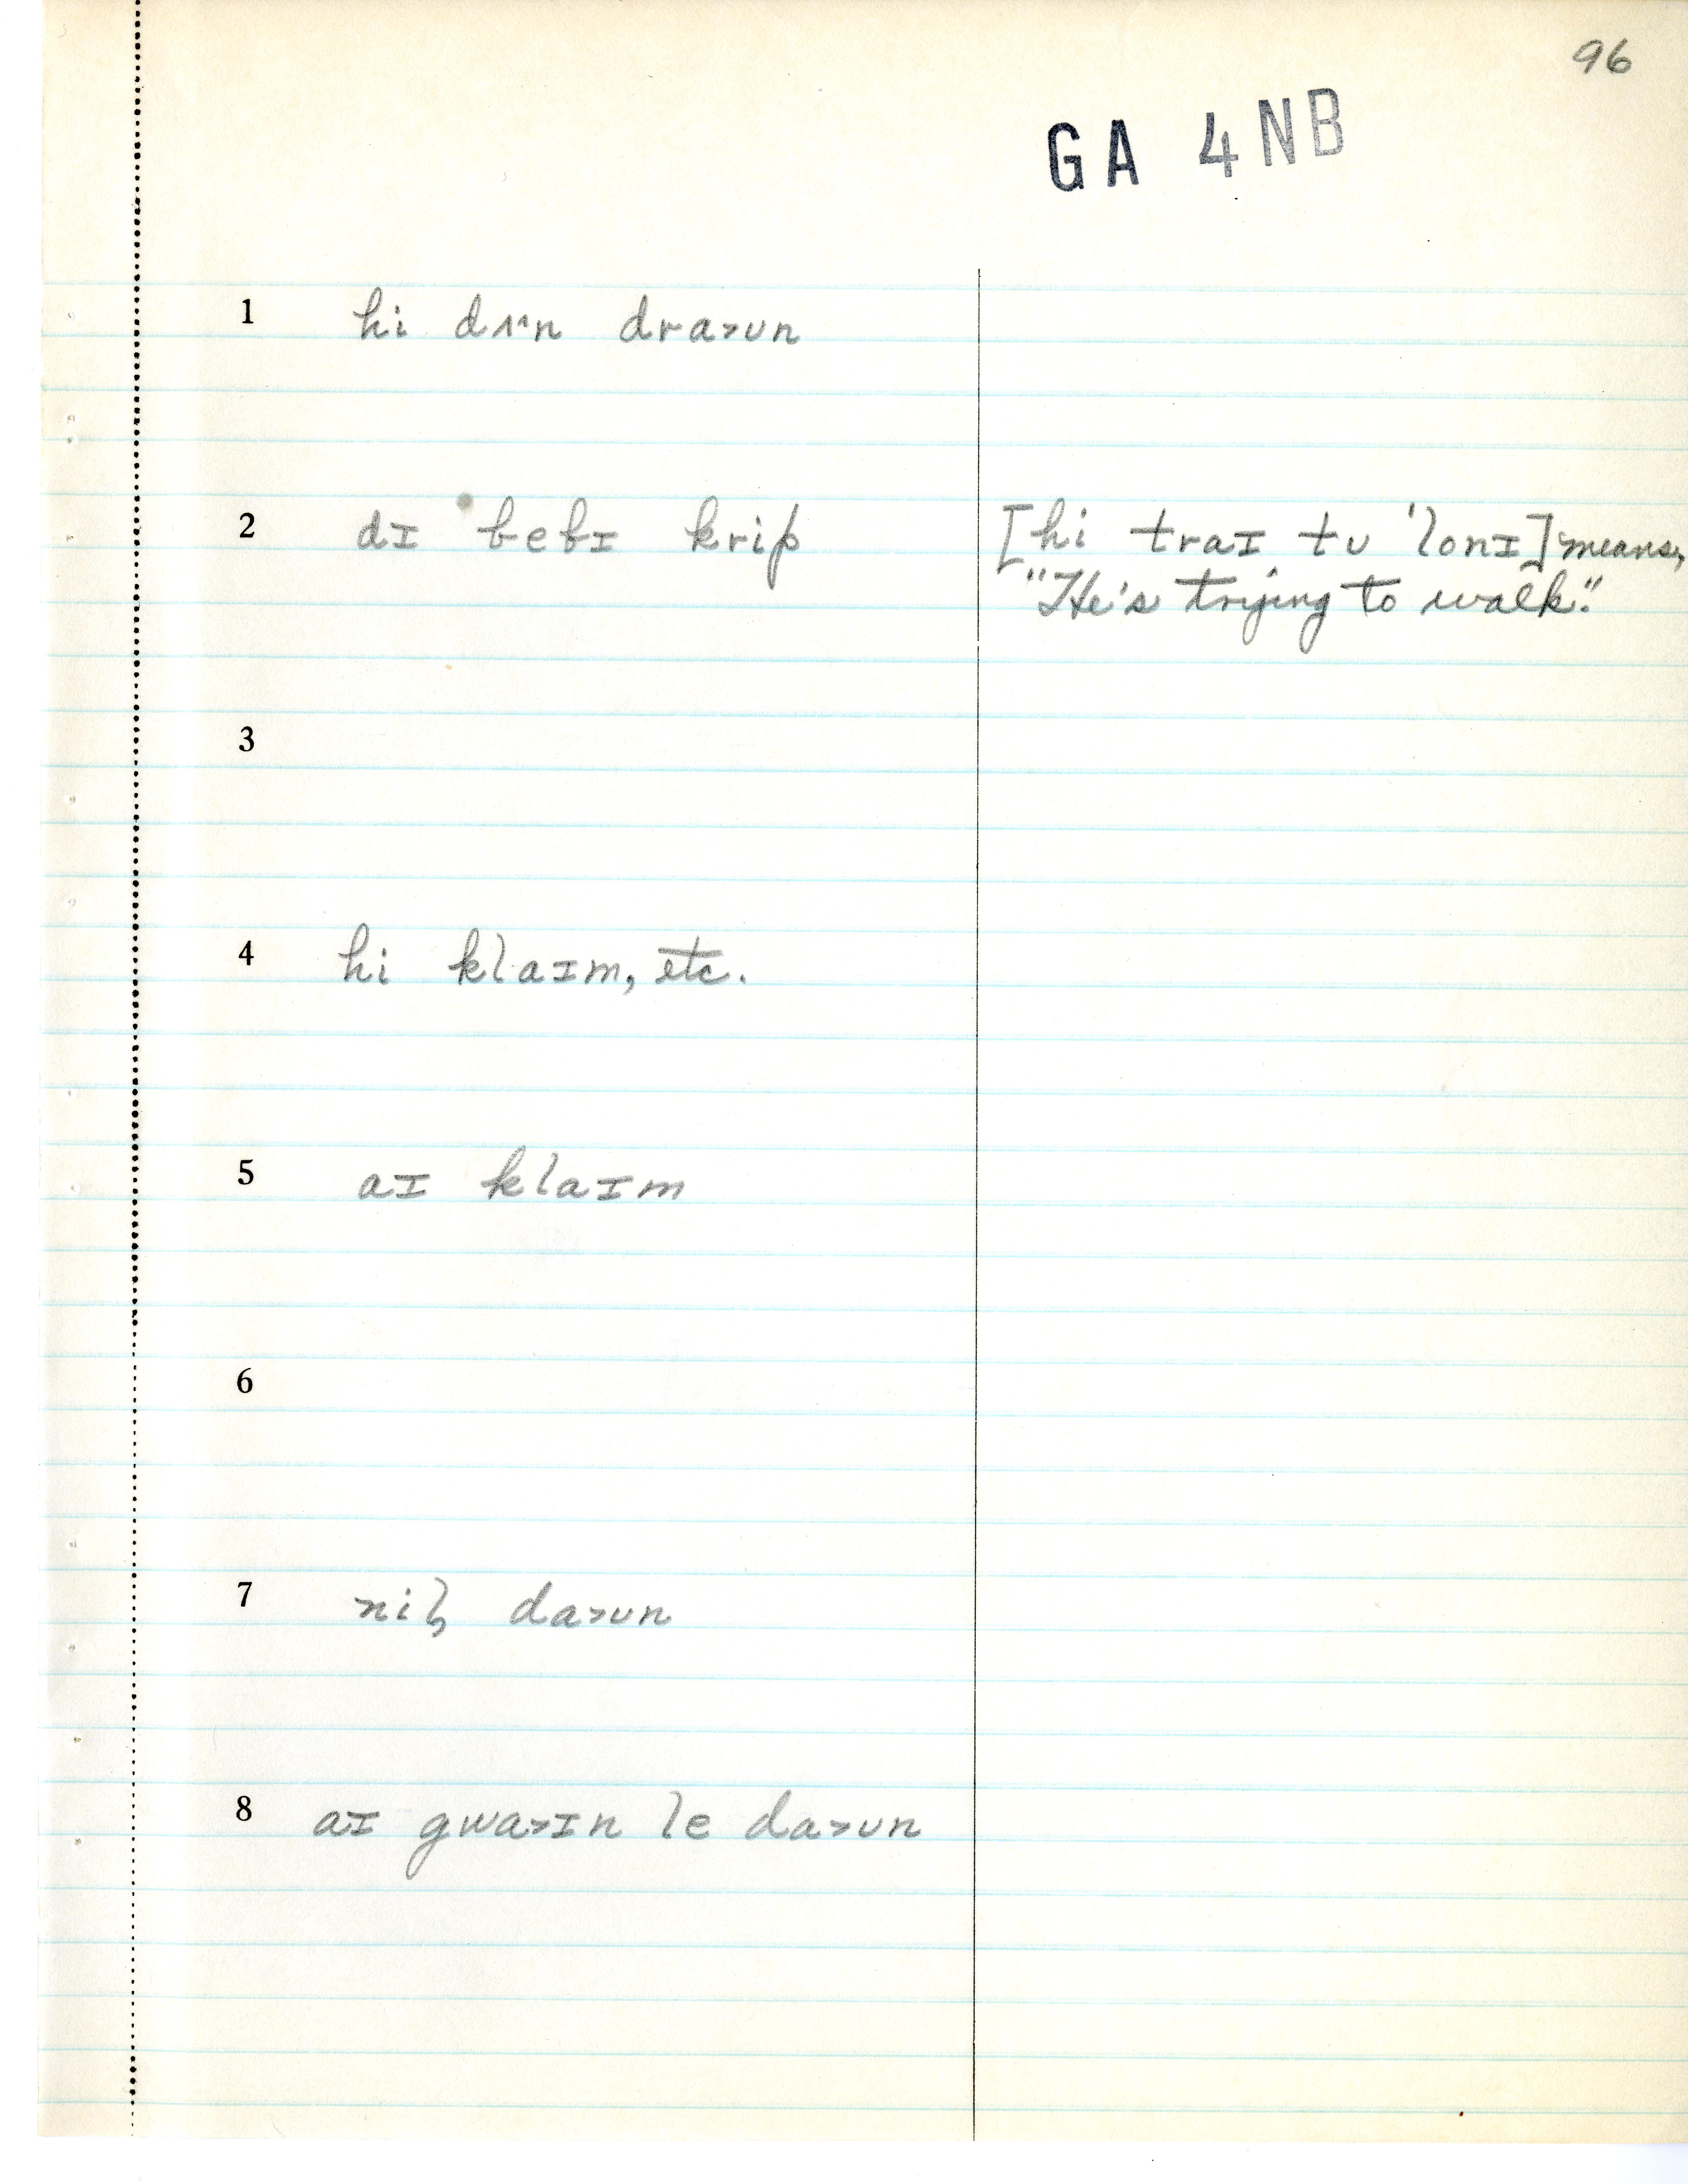 96
GA 4NB
1 hi dʌ^n dra>ʊn
2 dɪ ˈbebɪ krip [hi traɪ tʊ ˈlonɪ] means,
"He's trying to walk."
3
4 hi klaɪm, etc.
5 aɪ klaɪm
6
7 nil̩ da>ʊn
8 aɪ gwa>ɪn le da>ʊn